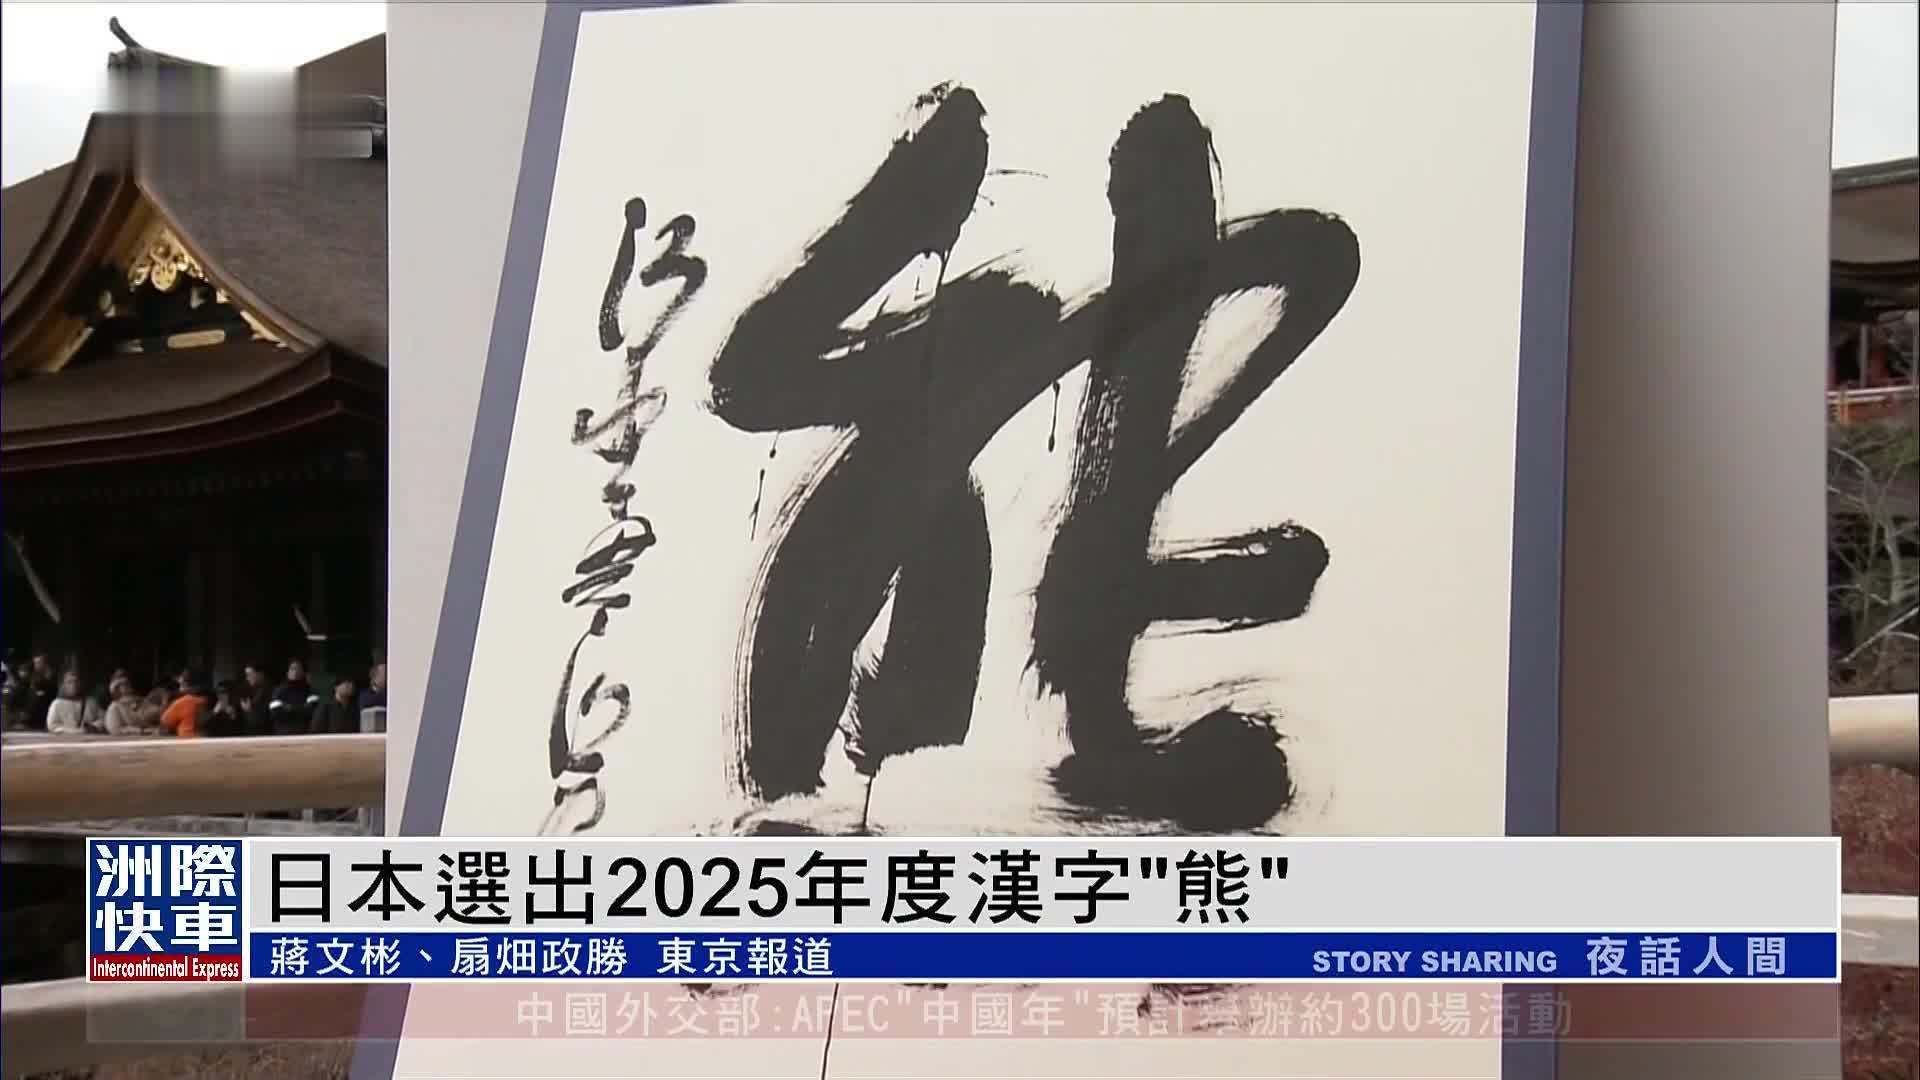 熊
洲際
快車
Intercontinental Express
日本選出2025年度漢字"熊"
蔣文彬、扇畑政勝 東京報道
STORY SHARING 夜話人間
中國外交部:APEC"中國年"預計舉辦約300場活動